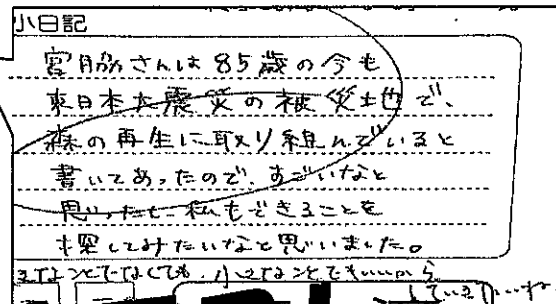 小日記
宮脇さんは85歳の今も
東日本大震災の被災土地で、
森の再生に取り組んでいると
書いてあったので、すごいなと
思ったし、私もできることを
探してみたいなと思いました。
なことでなくても、小さなことでもいいから
していきたいね